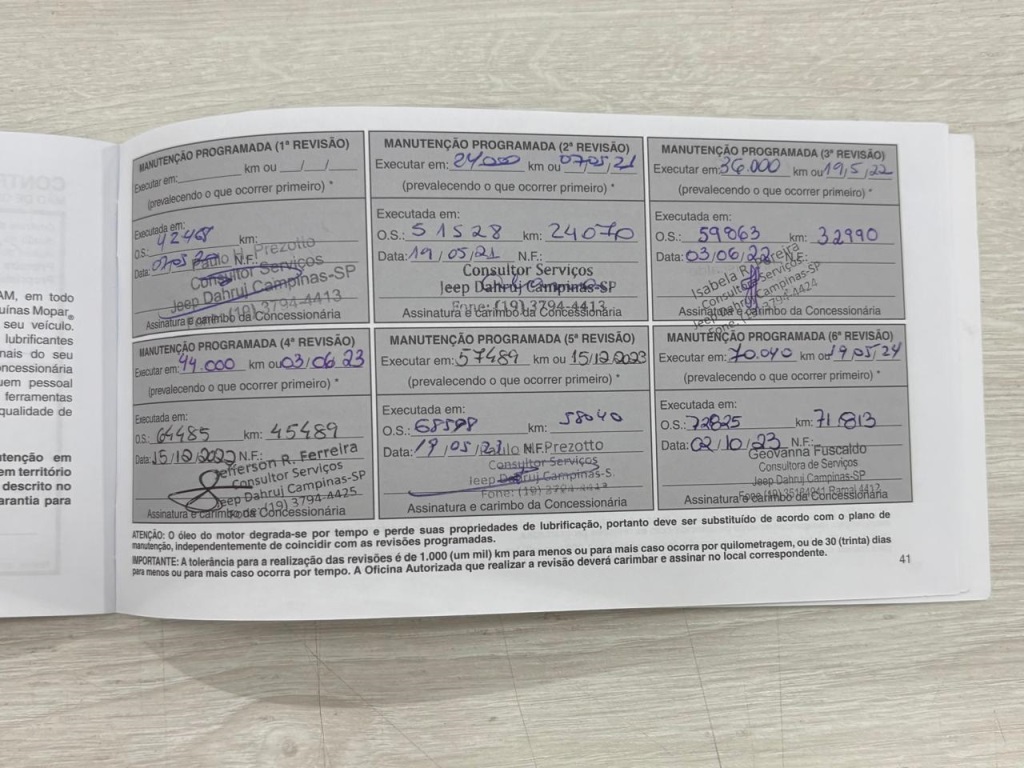 MANUTENÇÃO PROGRAMADA (1ª REVISÃO)
Executar em: km ou / /
(prevalecendo o que ocorrer primeiro) *
Executada em:
O.S.: 42468 km:
Data: 07.05 N.F.:
Paulo H. Prezotto
Consultor Serviços
Jeep Dahruj Campinas-SP
(19) 3794-4413
Assinatura e carimbo da Concessionária
MANUTENÇÃO PROGRAMADA (2ª REVISÃO)
Executar em: 24.000 km ou 07,05,21
(prevalecendo o que ocorrer primeiro) *
Executada em:
O.S.: 51528 km: 24070
Data: 19/05/21 N.F.:
Consultor Serviços
Jeep Dahruj Campinas-SP
Fone: (19) 3794-4413
Assinatura e carimbo da Concessionária
MANUTENÇÃO PROGRAMADA (3ª REVISÃO)
Executar em: 36.000 km ou 19,5,22
(prevalecendo o que ocorrer primeiro) *
Executada em:
O.S.: 59063 km: 32990
Data: 03/06/22 N.F.:
Isabela R. Ferreira
Consultor Serviços
Jeep Dahruj Campinas-SP
Fone: (19) 3794-4424
Assinatura e carimbo da Concessionária
MANUTENÇÃO PROGRAMADA (4ª REVISÃO)
Executar em: 44.000 km ou 03/06/23
(prevalecendo o que ocorrer primeiro) *
Executada em:
O.S.: 64485 km: 45489
Data: 15/12/2022 N.F.:
Jefferson R. Ferreira
Consultor Serviços
Jeep Dahruj Campinas-SP
(19) 3794-4425
Assinatura e carimbo da Concessionária
MANUTENÇÃO PROGRAMADA (5ª REVISÃO)
Executar em: 57489 km ou 15/12/2023
(prevalecendo o que ocorrer primeiro) *
Executada em:
O.S.: km: 58040
Data: 19/05/23 N.F.:
Prezotto
Consultor Serviços
Jeep Dahruj Campinas-S
Fone: (19) 3794-4413
Assinatura e carimbo da Concessionária
MANUTENÇÃO PROGRAMADA (6ª REVISÃO)
Executar em: 70.040 km ou 19,05,24
(prevalecendo o que ocorrer primeiro) *
Executada em:
O.S.: 72825 km: 71.813
Data: 02/10/23 N.F.:
Geovanna Fuscaldo
Consultora de Serviços
Jeep Dahruj Campinas-SP
Assinatura e carimbo da Concessionária
ATENÇÃO: O óleo do motor degrada-se por tempo e perde suas propriedades de lubrificação, portanto deve ser substituído de acordo com o plano de
manutenção, independentemente de coincidir com as revisões programadas.
IMPORTANTE: A tolerância para a realização das revisões é de 1.000 (um mil) km para menos ou para mais caso ocorra por quilometragem, ou de 30 (trinta) dias
para menos ou para mais caso ocorra por tempo. A Oficina Autorizada que realizar a revisão deverá carimbar e assinar no local correspondente.
41
AM, em todo
uínas Mopar®
seu veículo.
lubrificantes
nais do seu
oncessionária
uem pessoal
ferramentas
qualidade de
utenção em
em território
descrito no
arantia para